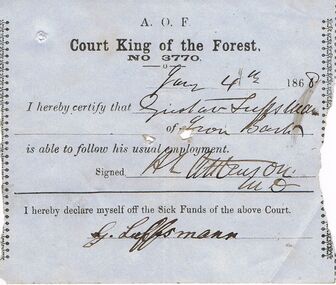 A. O. F.
Court King of the Forest.
NO 3770.
Jany 4th 1868
I hereby certify that Gustav Luffsman
of Iron Bark
is able to follow his usual employment.
Signed H L Atkinson
M D
I hereby declare myself off the Sick Funds of the above Court.
G. Luffsmann